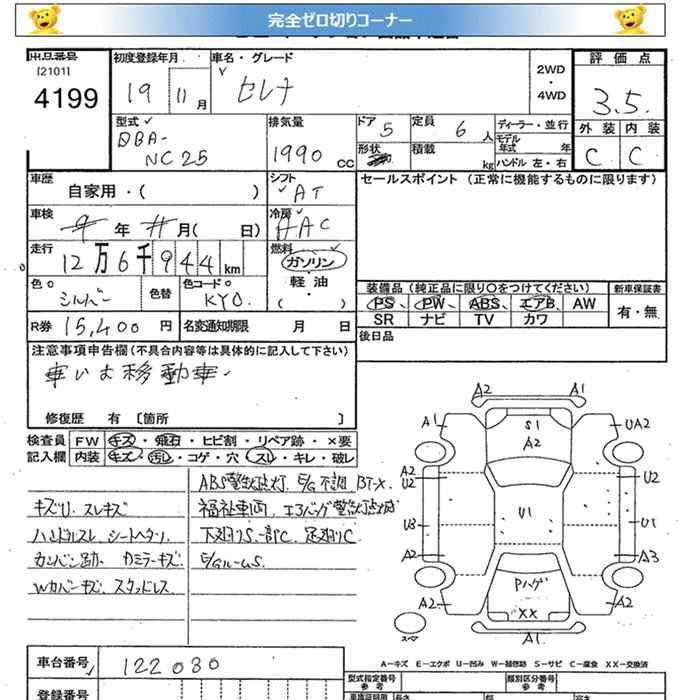 完全ゼロ切りコーナー
出品番号 初度登録年月 車名・グレード 評価点
[2101] 4199 19 11月 セレナ 2WD・4WD 3.5.
型式 DBA-NC25 排気量 1990 CC ドア 5 定員 6人 ディーラー・並行 外装 内装
形状 積載 kg モデル年式 年 ハンドル 左・右 C C
車歴 自家用・( ) シフト AT セールスポイント (正常に機能するものに限ります)
車検 年 月( 日) 冷房 AAC
走行 12万6千944km 燃料 ガソリン・軽油・( )
色 シルバー 色替 色コード KY0.
装備品 (純正品に限り○をつけてください) 新車保証書
PS、PW、ABS、エアB、AW 有・無
SR ナビ TV カワ
R券 15,400円 名変通知期限 月 日 後日品
注意事項申告欄(不具合内容等は具体的に記入して下さい)
車いす移動車
修復歴 有 〔箇所 〕
検査員 FW キズ・飛石・ヒビ割・リペア跡・×要
記入欄 内装 キズ・汚レ・コゲ・穴・スレ・キレ・破レ
キズU. スレキズ
ハンドルスレ シートヘタリ.
カンバン跡. カミラーキズ.
Wカバーキズ. スタッドレス.
ABS警告点灯. E/G不調 BT-X.
福祉車両. エアバッグ警告灯点灯
下廻りS.一部C. 足廻りC
E/GルームS.
A2 A1
A1 S1 UA2
A2
A2 U2 U2
U3 U1 U1
A2 A3
Pハゲ
A2 XX A2
スペア A1
A-キズ E-エクボ U-凹み W-補修跡 S-サビ C-腐食 XX-交換済
車台番号 122030
型式指定番号 参考 類別区分番号 参考
登録番号